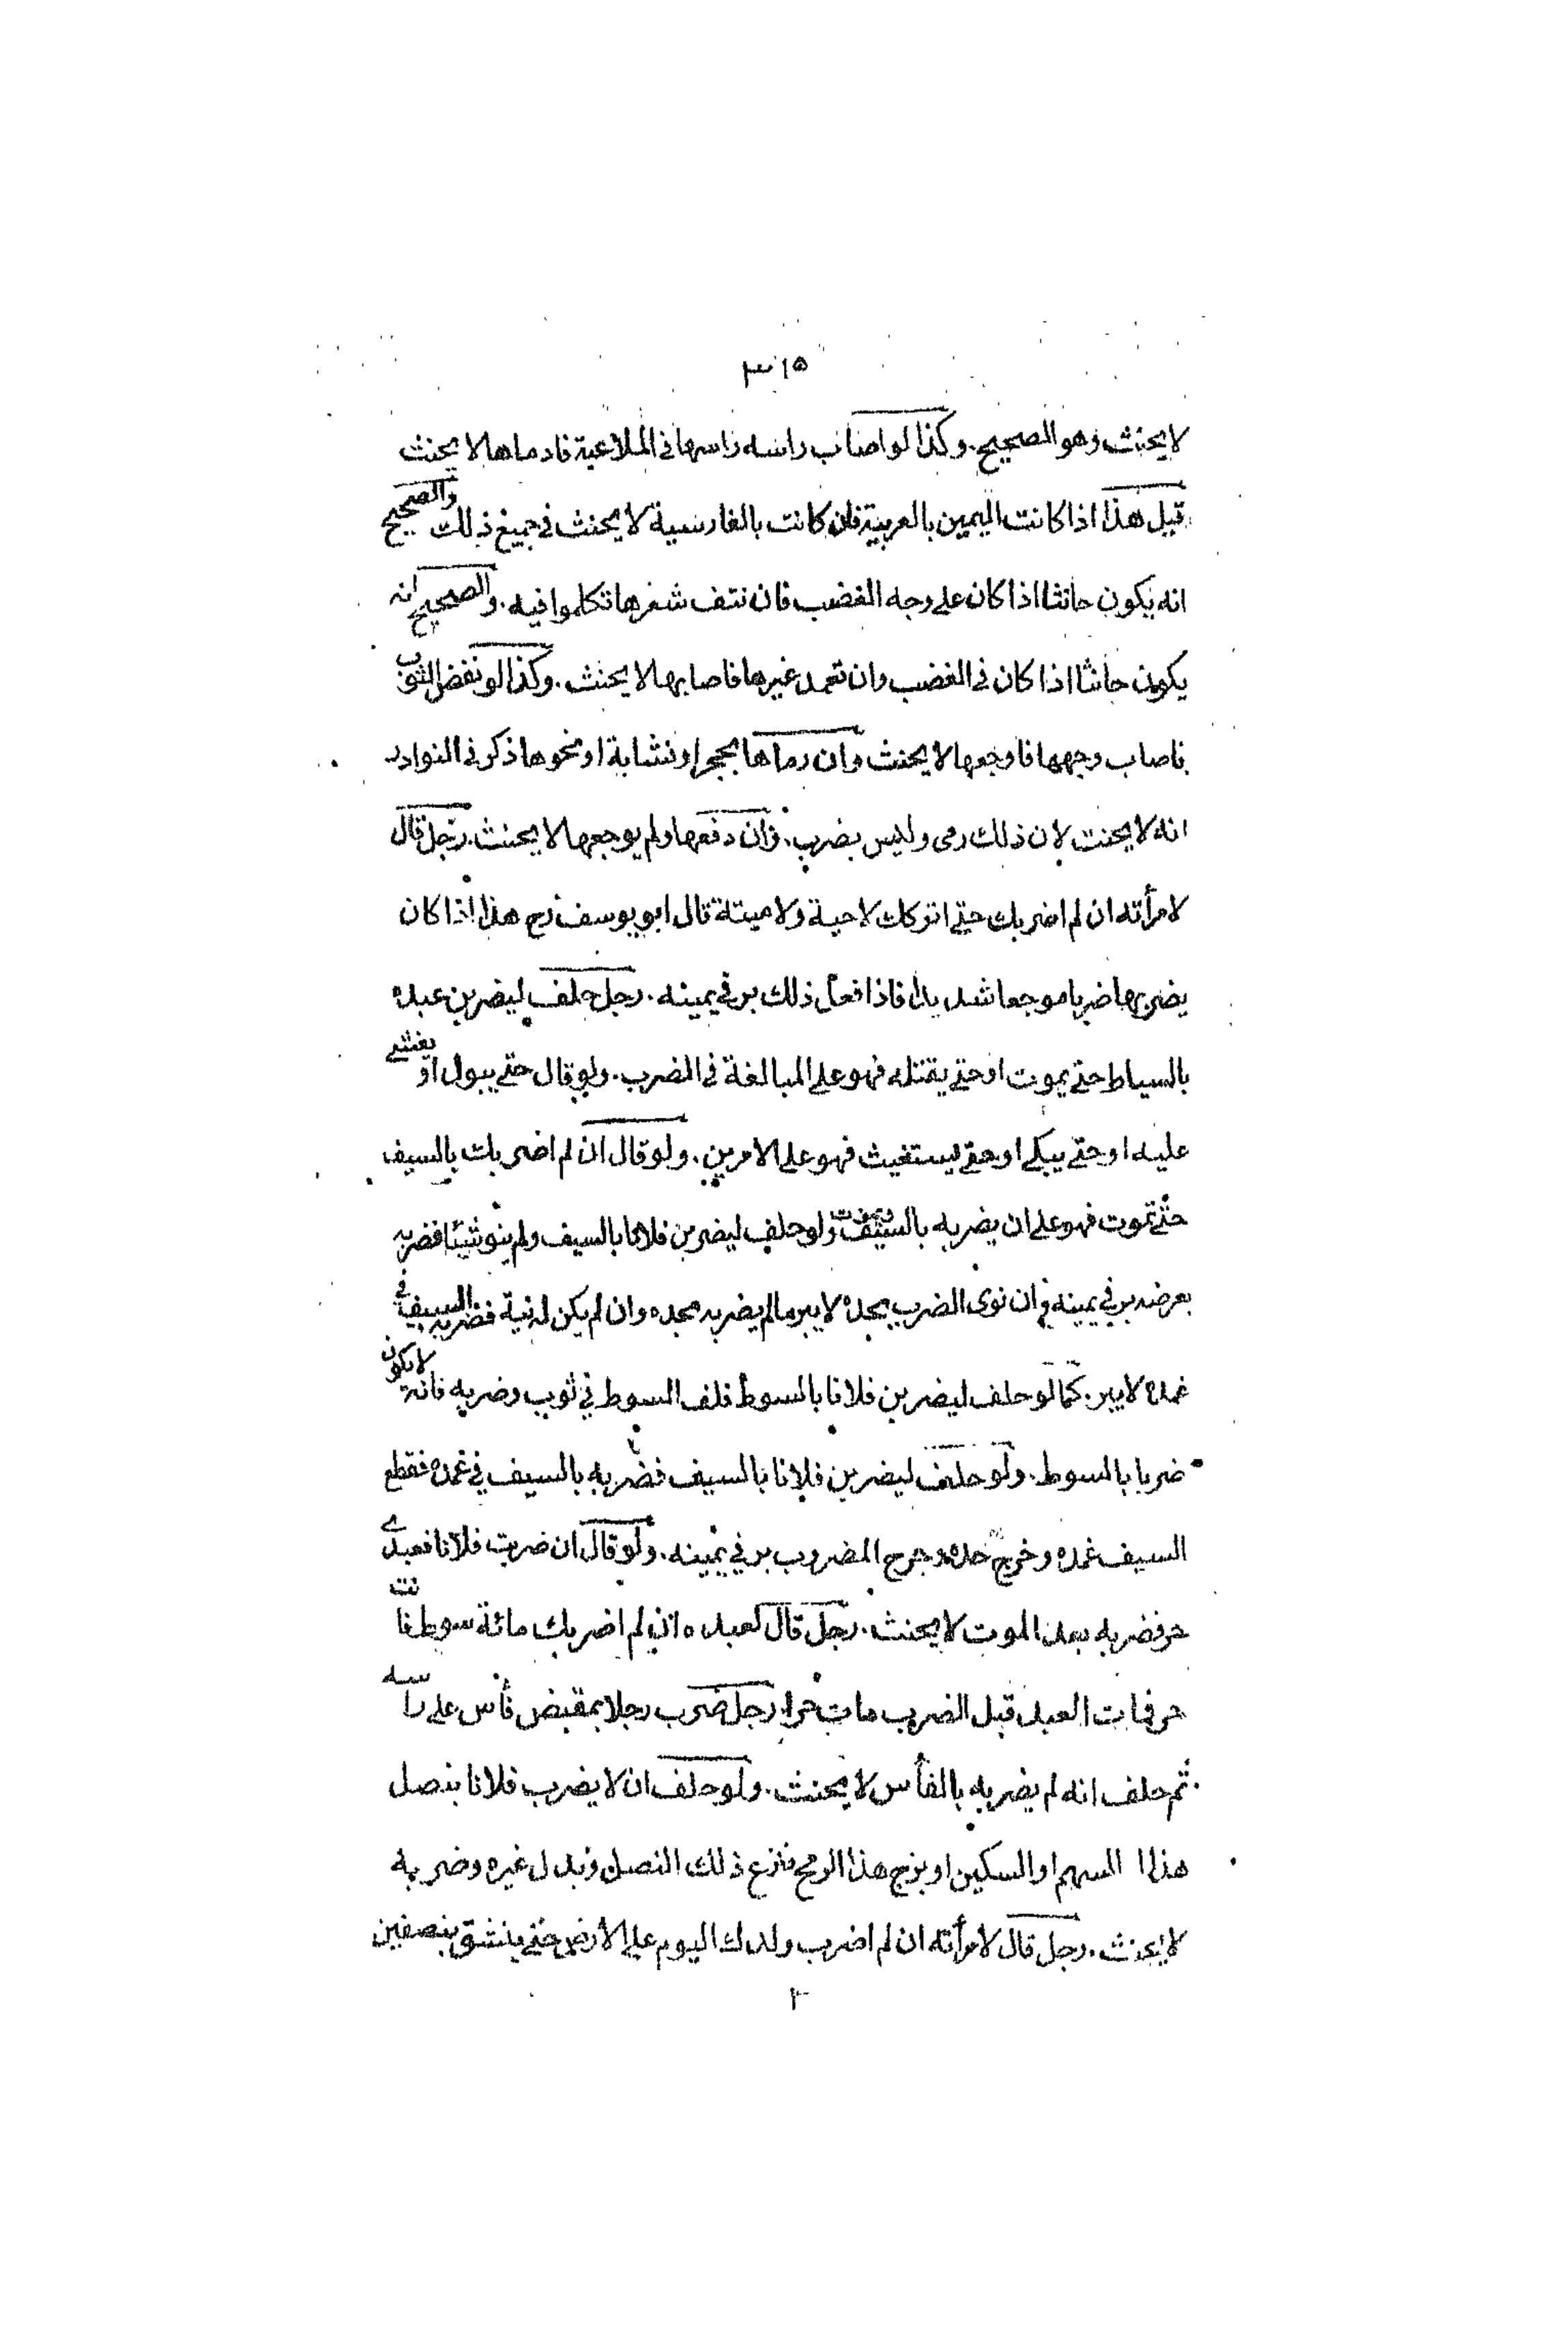 ٣١٥
لا يحنث وهو الصحيح. وكذا لو اصاب راسه راسها فى الملاعبة فادماها لا يحنث
قيل هذا اذا كانت اليمين بالعربية فان كانت بالفارسية لا يحنث فى جميع ذلك والصحيح
انه يكون حانثا اذا كان على وجه الغضب فان نتف شعرها تكلموا فيه. والصحيح انه
يكون حانثا اذا كان فى الغضب وان تعمد غيرها فاصابها لا يحنث. وكذا لو نفض الثوب
فاصاب وجهها فاوجعها لا يحنث وان رماها بحجر او نشابة او نحوها ذكر فى النوادر
انه لا يحنث لان ذلك رمى وليس بضرب. وان دفعها ولم يوجعها لا يحنث. رجل قال
لامرأته ان لم اضربك حتى اتركك لا حية ولا ميتة قال ابو يوسف رح هذا اذا كان
يضربها ضربا موجعا شديدا فاذا فعل ذلك بر فى يمينه. رجل حلف ليضربن عبده
بالسياط حتى يموت او حتى يقتله فهو على المبالغة فى الضرب. ولو قال حتى يبول او يغشى
عليه او حتى يبكى او حتى يستغيث فهو على الامرين. ولو قال ان لم اضربك بالسيف
حتى تموت فهو على ان يضربه بالسيف ويموت ولو حلف ليضربن فلانا بالسيف ولم ينو شيئا فضربه
بعرضه بر فى يمينه وان نوى الضرب بحده لا يبر ما لم يضربه بحده وان لم يكن له نية فضربه بالسيف فى
غمده لا يبر. كما لو حلف ليضربن فلانا بالسوط فلف السوط فى ثوب وضربه فانه لا يكون
ضربا بالسوط. ولو حلف ليضربن فلانا بالسيف فضربه بالسيف فى غمده فقطع
السيف غمده وخرج حده وجرح المضروب بر فى يمينه. ولو قال ان ضربت فلانا فعبدى
حر فضربه بعد الموت لا يحنث. رجل قال لعبده ان لم اضربك مائة سوط فانت
حر فمات العبد قبل الضرب مات حرا. رجل ضرب رجلا بمقبض فأس على راسه
ثم حلف انه لم يضربه بالفأس لا يحنث. ولو حلف ان لا يضرب فلانا بنصل
هذا السهم او السكين او بزج هذا الرمح فنزع ذلك النصل وبدل غيره وضربه
لا يحنث. رجل قال لامرأته ان لم اضرب ولدك اليوم على الارض حتى ينشق بنصفين